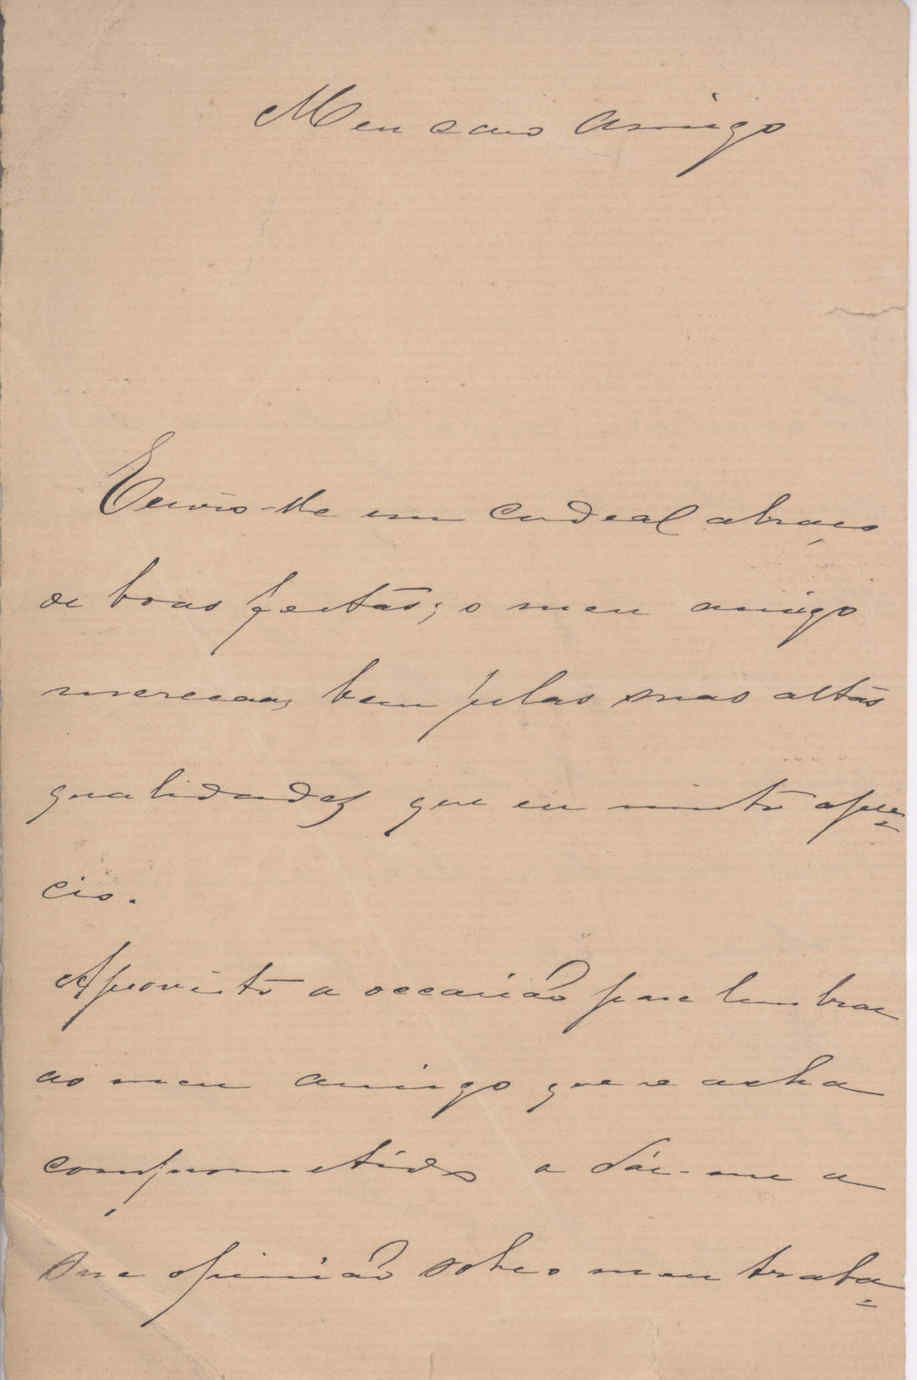 Meu caro Amigo
Envio-lhe um cordeal abraço
de boas festas; o meu amigo
merece-as, bem pelas suas altas
qualidades que eu muito apre=
cio.
Aproveito a occasião para lembrar
ao meu amigo que se acha
compromettido a dár-me a
sua opinião sobre o meu traba=